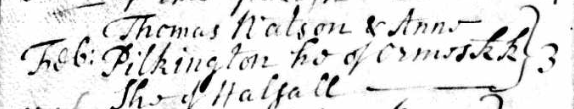 Thomas Watson & Anne
Feb: Pilkington he of Ormoskk } 3
She of Halsall